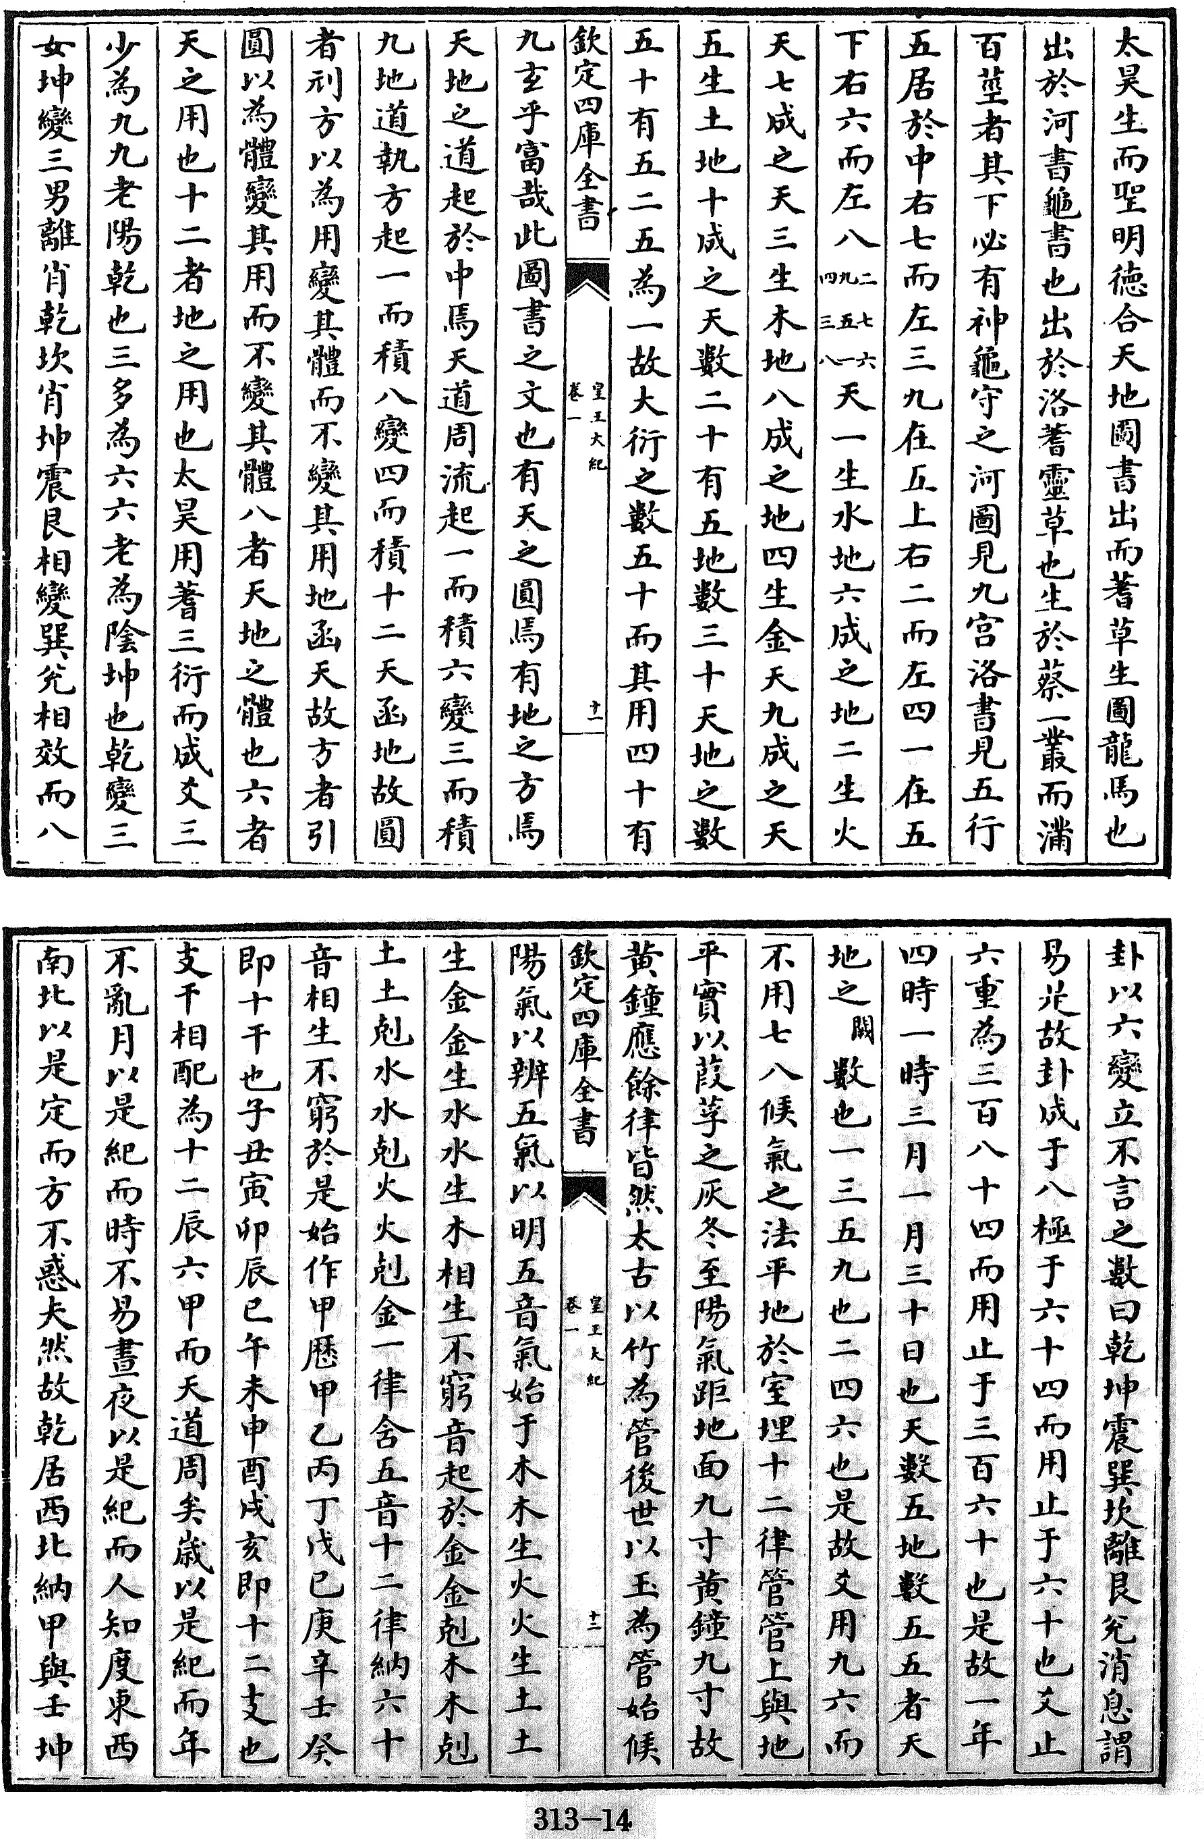 太昊生而聖明德合天地圖書出而蓍草生圖龍馬也
出於河書龜書也出於洛蓍靈草也生於蔡一叢而滿
百莖者其下必有神龜守之河圖見九宫洛書見五行
五居於中右七而左三九在五上右二而左四一在五
下右六而左八
二七六
九五一
四三八
天一生水地六成之地二生火
天七成之天三生木地八成之地四生金天九成之天
五生土地十成之天數二十有五地數三十天地之數
五十有五二五為一故大衍之數五十而其用四十有
欽定四庫全書
皇王大紀
卷一
十一
九玄乎富哉此圖書之文也有天之圓焉有地之方焉
天地之道起於中焉天道周流起一而積六變三而積
九地道執方起一而積八變四而積十二天函地故圓
者刓方以為用變其體而不變其用地函天故方者引
圓以為體變其用而不變其體八者天地之體也六者
天之用也十二者地之用也太昊用蓍三衍而成爻三
少為九九老陽乾也三多為六六老為陰坤也乾變三
女坤變三男離肖乾坎肖坤震艮相變巽兊相效而八
卦以六變立不言之數曰乾坤震巽坎離艮兊消息謂
易是故卦成于八極于六十四而用止于六十也爻止
六重為三百八十四而用止于三百六十也是故一年
四時一時三月一月三十日也天數五地數五五者天
地之
闕
數也一三五九也二四六也是故爻用九六而
不用七八候氣之法平地於室埋十二律管管上與地
平實以葭莩之灰冬至陽氣距地面九寸黄鐘九寸故
黄鐘應餘律皆然太古以竹為管後世以玉為管始候
欽定四庫全書
皇王大紀
卷一
十二
陽氣以辨五氣以明五音氣始于木木生火火生土土
生金金生水水生木相生不窮音起於金金剋木木剋
土土剋水水剋火火剋金一律含五音十二律納六十
音相生不窮於是始作甲厯甲乙丙丁戊己庚辛壬癸
即十干也子丑寅卯辰巳午未申酉戌亥即十二支也
支干相配為十二辰六甲而天道周矣歲以是紀而年
不亂月以是紀而時不易晝夜以是紀而人知度東西
南北以是定而方不惑夫然故乾居西北納甲與壬坤
313-14